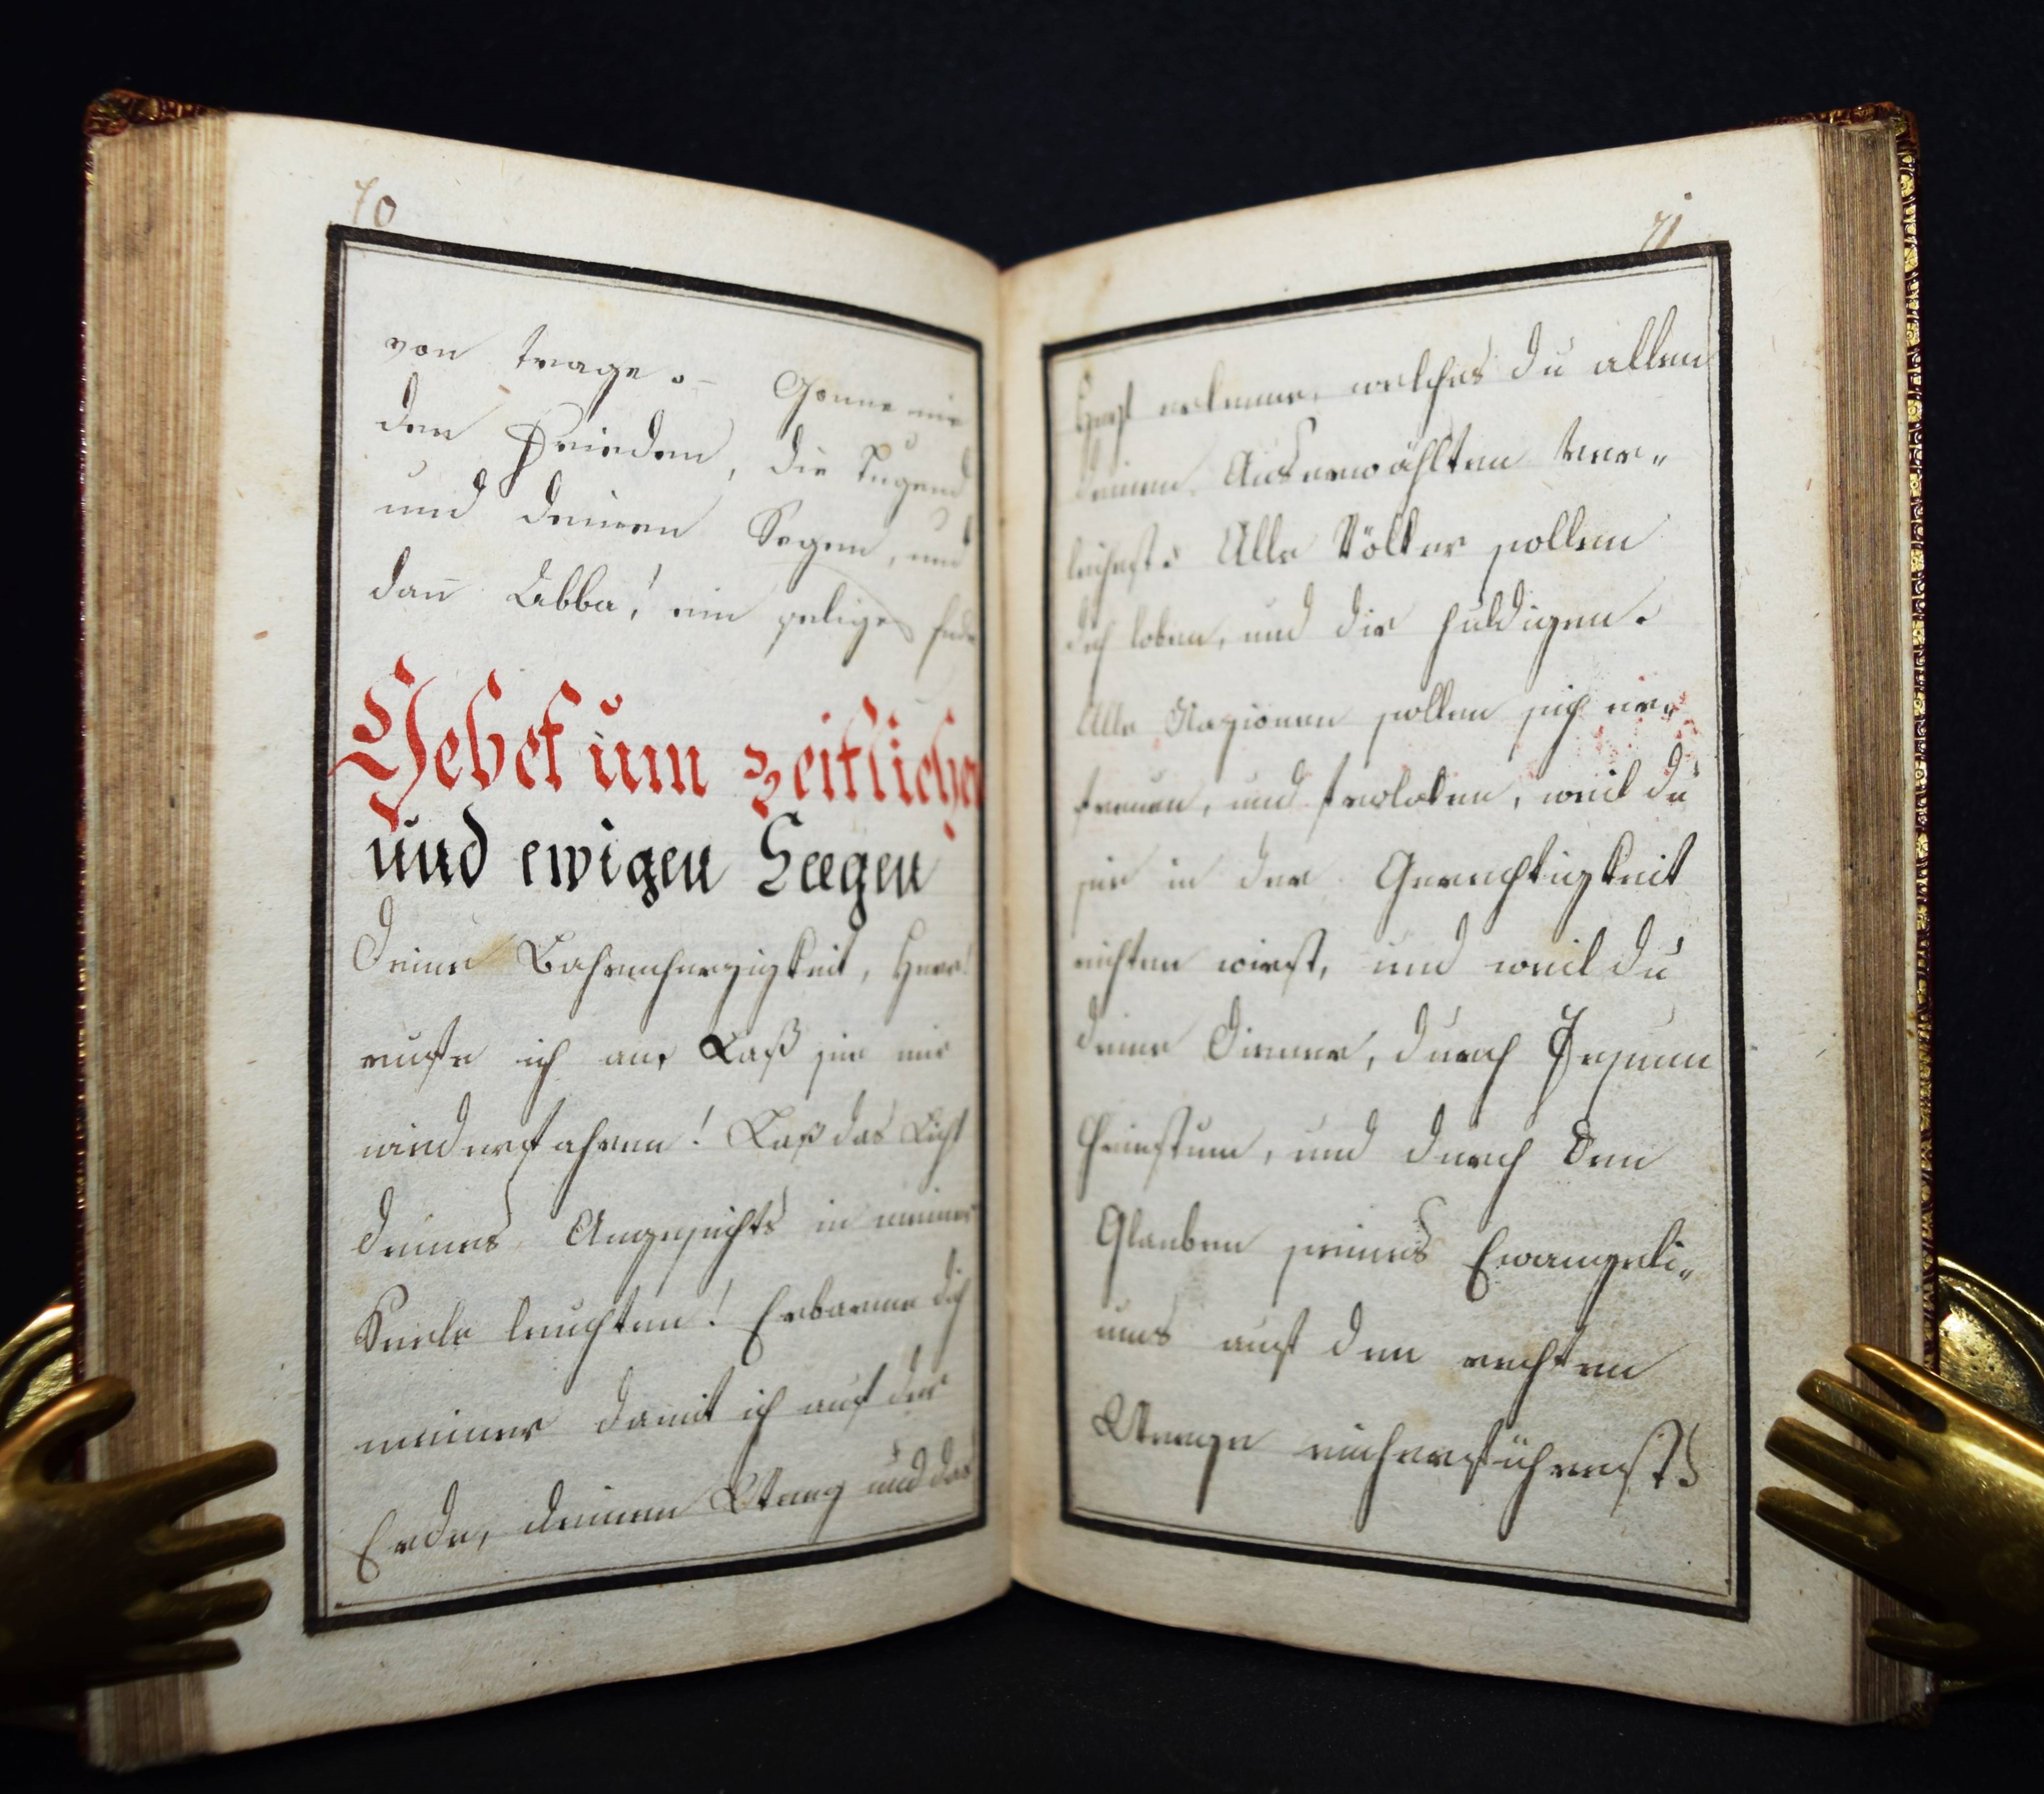 70
von trage. – Gönne mir
den Frieden, die Tugend
und deinen Segen, und
dan̄ Abba! ein seliges Ende
Gebet um zeitlichen
und ewigen Seegen
Deine Bahrmherzigkeit, Herr!
rufe ich an. Laß sie mir
wiederfahren! Laß das Licht
deines Angesichts in meiner
Seele leuchten! Erbarme dich
meiner damit ich auf der
Erde, deinen Weeg und das
71
erkenne, welches du allen
deinen Auserwählten ver„
leihest. Alle Völker sollen
dich loben, und dir huldigen.
Alle Nazionen sollen sich er„
freuen, und froloken, weil du
sie in der Gerechtigkeit
richten wirst, und weil du
deine Diener, durch Jesum
Christum, und durch den
Glauben seines Evangeli„
ums auf den rechten
Weege einherführest